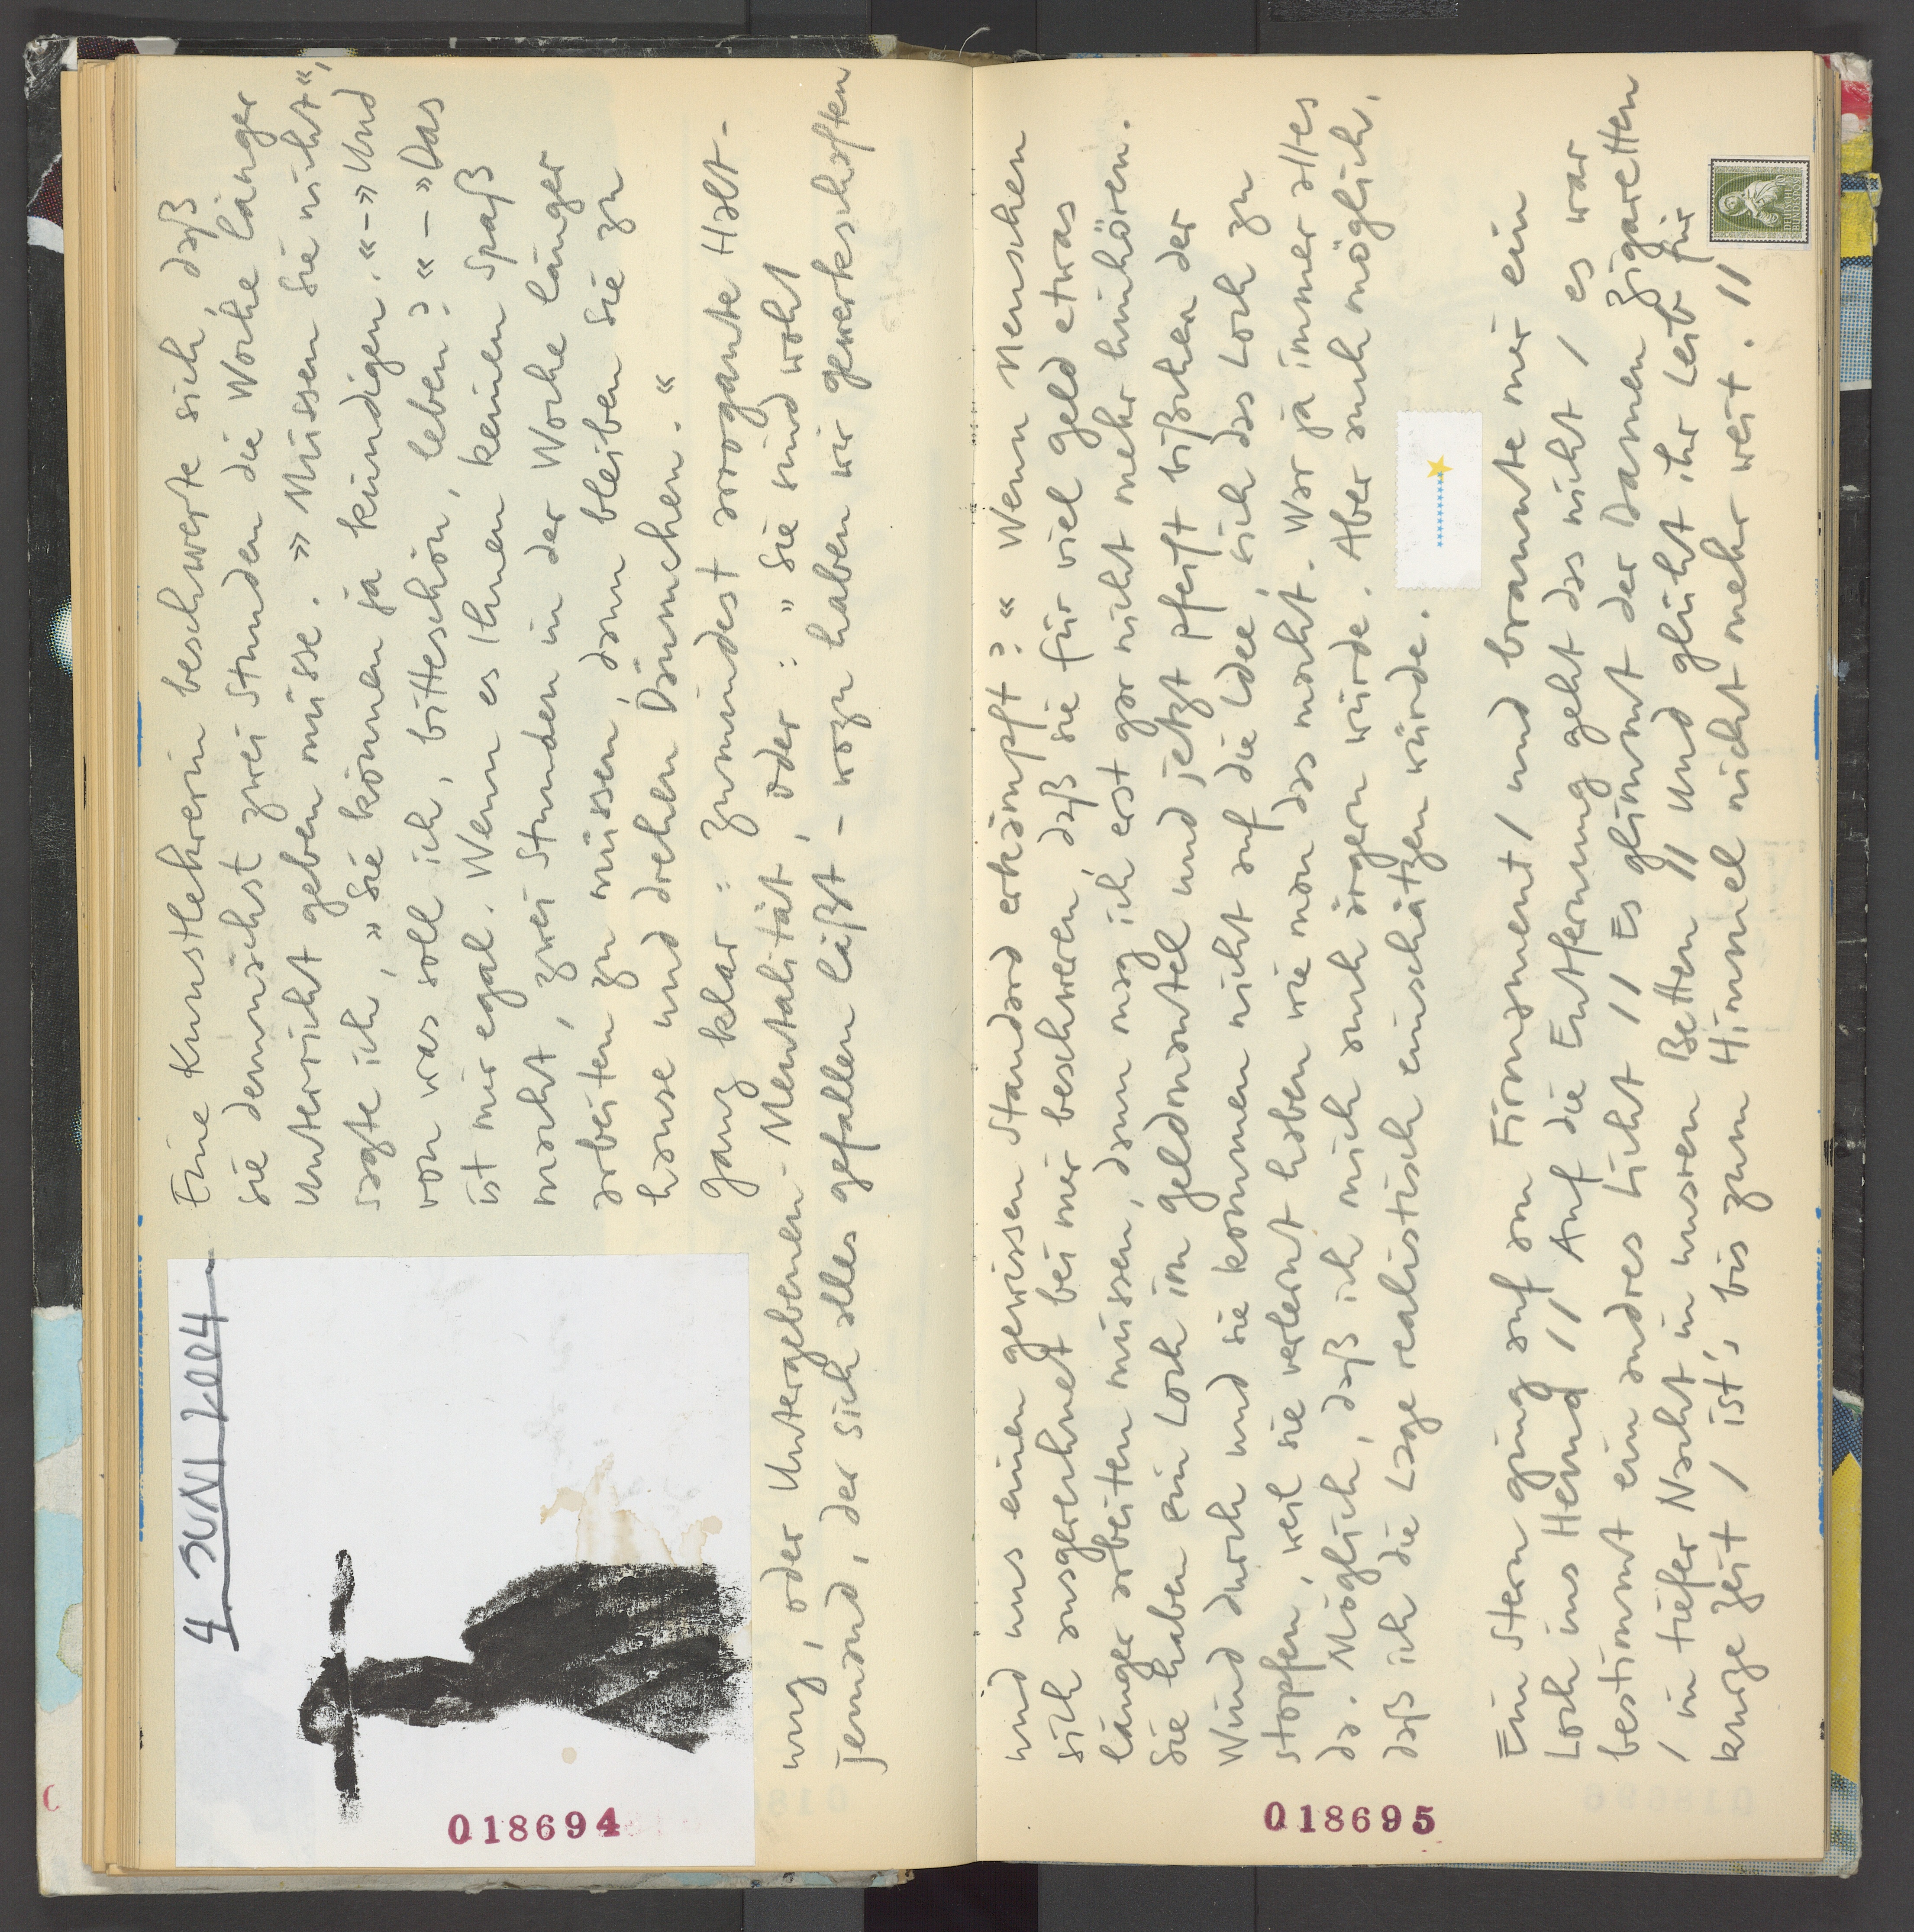 4. JUNI 2004
Eine Kunstlehrerin beschwerte sich, daß
sie demnächst zwei Stunden die Woche länger
Unterricht geben müsse. »Müssen sie nicht«,
sagte ich, »Sie können ja kündigen.« – »Und
von was soll ich, bitteschön, leben?« – »Das
ist mir egal. Wenn es Ihnen keinen Spaß
macht, zwei Stunden in der Woche länger
arbeiten zu müssen, dann bleiben Sie zu
hause und drehen Däumchen.«
Ganz klar: zumindest arrogante Hal-
tung, oder Untergebenen-Mentalität, oder: »Sie sind wohl
jemand, der sich alles gefallen läßt – wozu haben wir gewerkschaften
und uns einen gewissen Standard erkämpft?« Wenn Menschen
sich ausgerechnet bei mir beschweren, daß sie für viel Geld etwas
länger arbeiten müssen, dann mag ich erst gar nicht mehr hinhören.
Sie haben ein Loch im Geldmantel und jetzt pfeift bißchen der
Wind durch und sie kommen nicht auf die Idee, sich das Loch zu
stopfen, weil sie verlernt haben wie man das macht. War ja immer alles
da. Möglich, daß ich mich auch ärgern würde. Aber auch möglich,
daß ich die Lage realistisch einschätzen würde.
Ein Stern ging auf am Firmament / und brannte mir ein
Loch ins Hemd // Auf die Entfernung geht das nicht / es war
bestimmt ein andres Licht // Es glimmt der Damen Zigaretten
/ in tiefer Nacht in unsren Betten // Und glüht ihr Leib für
kurze Zeit / ist's bis zum Himmel nicht mehr weit. //
DEUTSCHE
BUNDESPOST
10
018694
018695